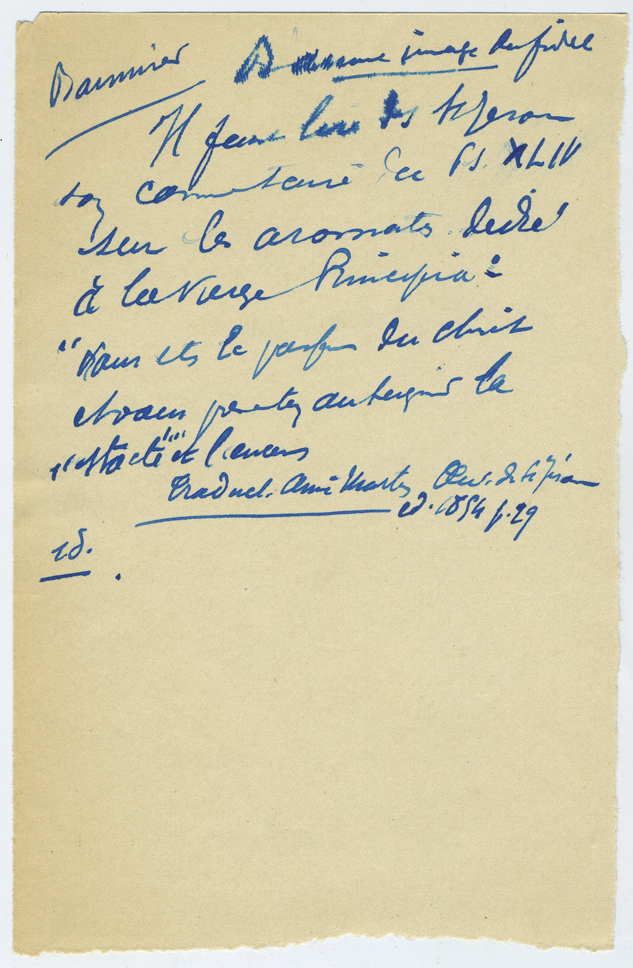 Baumier Baume image du fidèle
Il faut lire ds St Jérom
son commentaire du Ps. XLIV
sur les aromats dédié
à la Vierge Principia :
"Vous êts le parfum du Christ
et vous portez la
"stacté" et l'encens
Traduct. Aimé Martin Œuv. de St Jérom
ed. 1854 p. 29
id.